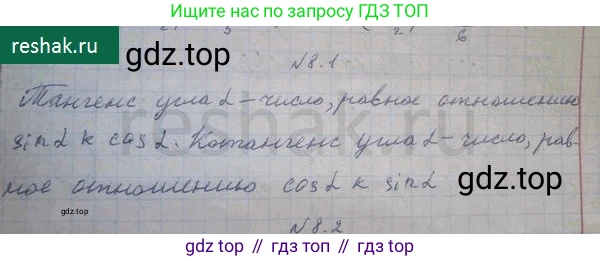 Ищите нас по запросу ГДЗ ТОП
reshak.ru
gdz.top
N 8.1
Тангенс угла α – число, равное отношению
sin α к cos α. Котангенс угла α – число, рав-
ное отношению cos α к sin α
gdz.top
gdz.top
reshak.ru
N 8.2
gdz.top // гдз топ // gdz top // гдз.топ